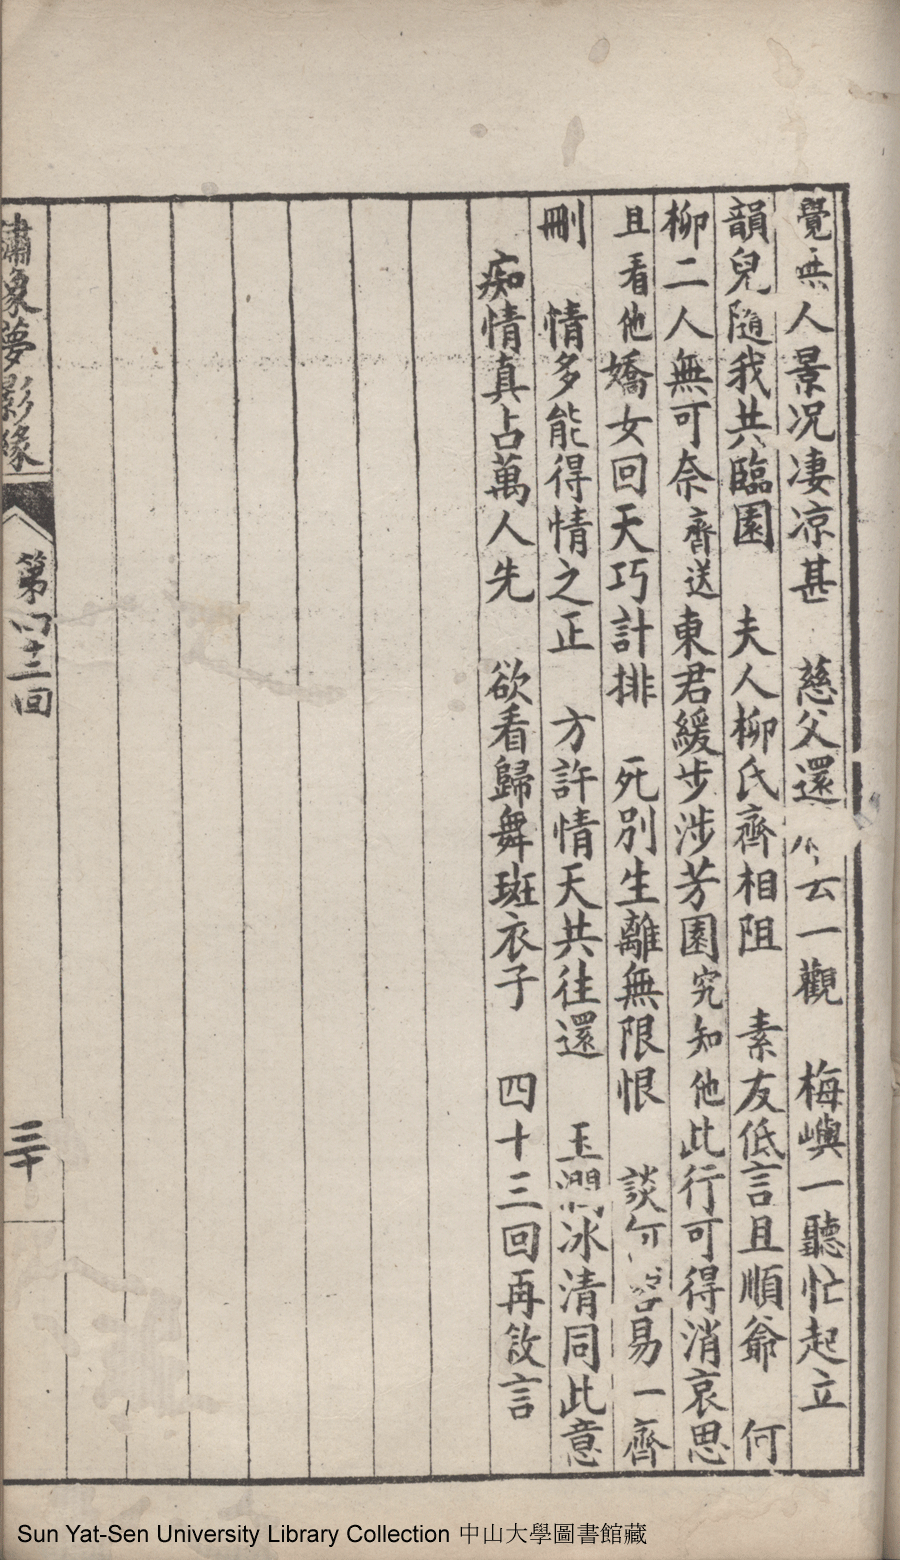 覺無人景况凄凉甚　慈父還　云一觀　梅嶼一聽忙起立
韻兒隨我共臨園　夫人柳氏齊相阻　素友低言且順爺　何
柳二人無可奈齊送東君緩步涉芳園究知他此行可得消哀思
且看他嬌女回天巧計排　死別生離無限恨　談何容易一齊
刪　情多能得情之正　方許情天共往還　玉潤冰清同此意
痴情真占萬人先　欲看歸舞斑衣子　四十三回再啟言
繡像夢影緣
第四十二回
三十
Sun Yat-Sen University Library Collection 中山大學圖書館藏